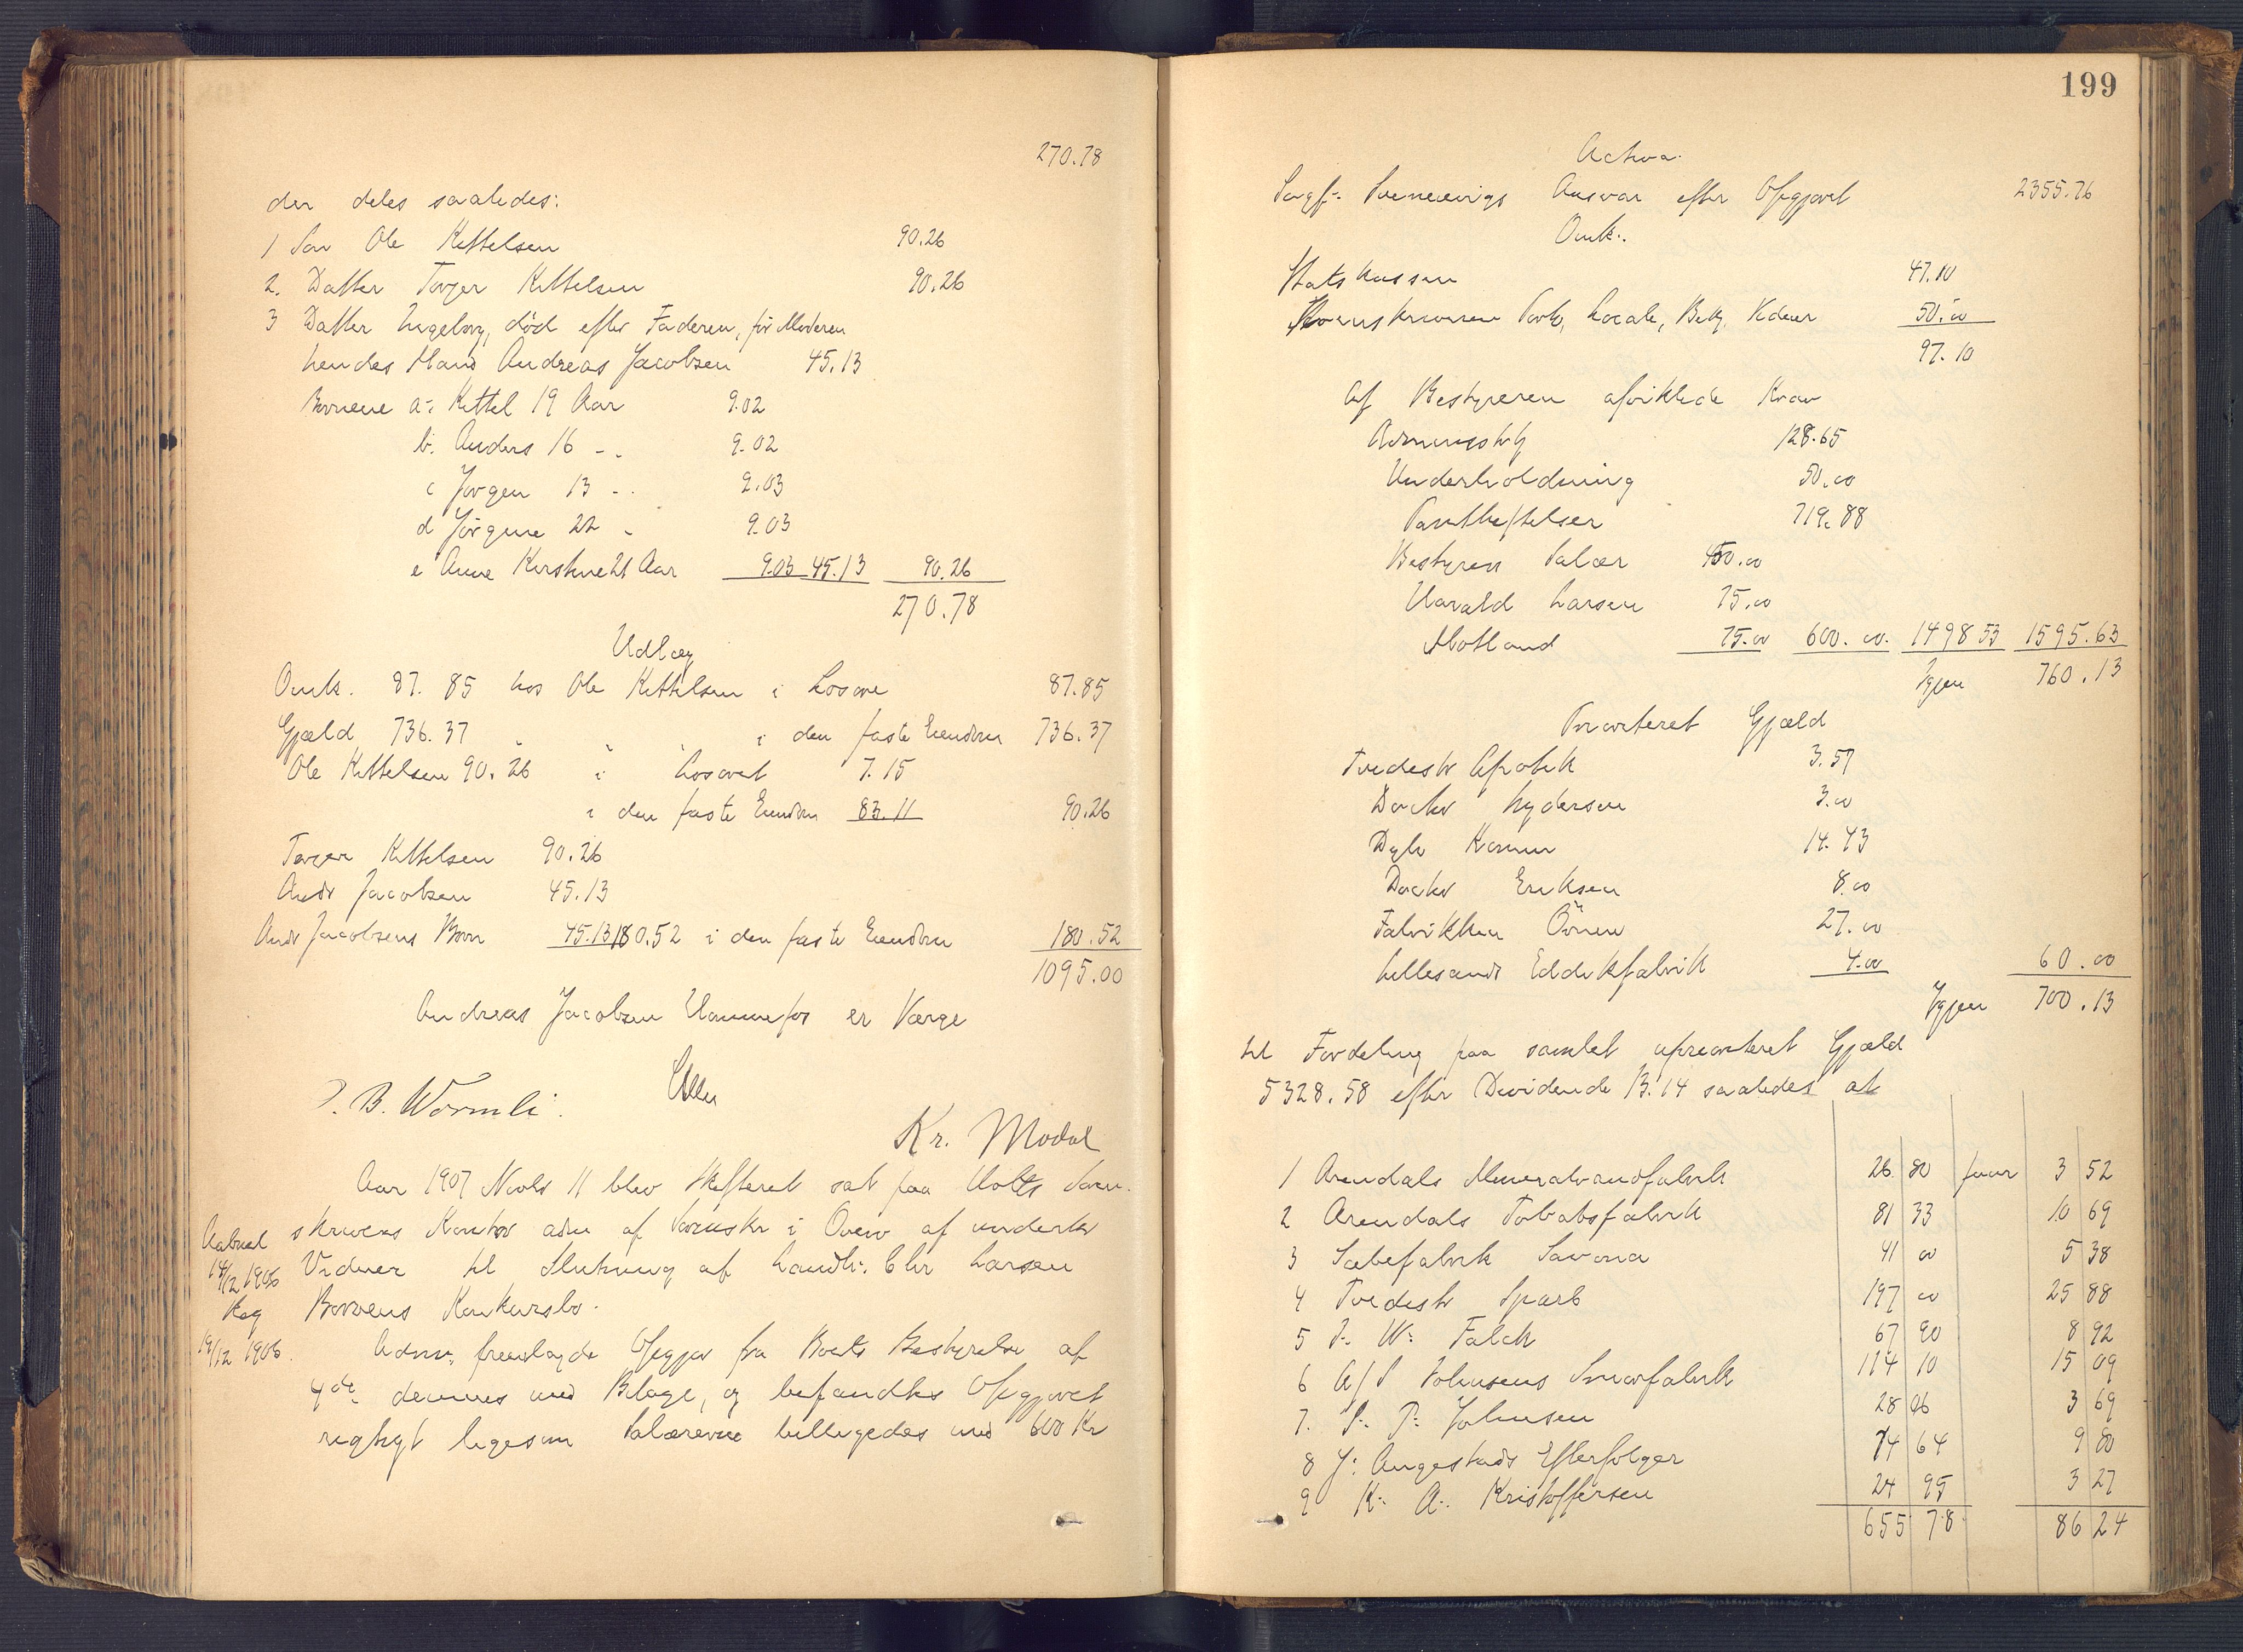 270.78
der deles saaledes:
1 Søn Ole Kittelsen 90.26
2. Datter Torger Kittelsen 90.26
3 Datter Ingeborg, død efter Faderen, før Moderen
hendes Mand Andreas Jacobsen 45.13
Børnene a: Kittel 19 Aar 9.02
b. Anders 16 - . 9.02
c Jørgen 13 - . 9.03
d Jørgine 22 - 9.03
e Anne Kirstine 21 Aar 9.03 45.13 90.26
270.78
Udlæg
Omk. 87.85 hos Ole Kittelsen i Løsøre 87.85
Gjæld 736.37 " " " i den faste Eiendom 736.37
Ole Kittelsen 90.26 i Løsøret 7.15
i den faste Eiendom 83.11 90.26
Torger Kittelsen 90.26
Andr Jacobsen 45.13
Andr Jacobsens Børn 45.13 180.52 i den faste Eiendom 180.52
1095.00
Andreas Jacobsen Hammefos er Værge
J. B. Wormli.
Kr. Modal
Aar 1907 Novbr 11 blev Skifteret sat paa Holts Soren-
skrivers Kontor adm af Sorenskr i Overv af underskr
Vidner til Slutning af Handl: Chr Larsen
Aabnet
14/12 1906
Borøens Konkursbo.
Reg
19/12 1906.
Adm. fremlagde Opgjør fra Boets Bestyrelse af
4de dennes med Bilage, og befandtes Opgjøret
rigtigt ligesom Salærerne billigedes med 600 Kr
199
Activa.
Sagf: Svennevigs Ansvar efter Opgjøret 2355.76
Omk:.
Statskassen 47.10
Sorenskriveren Protk, Locale, Betj, Vidner 50.00
97.10
Af Bestyreren afviklede Krav
Administrtg 128.65
Underholdning 50.00
Pantheftelser 719.88
Bestyrers Salær 450.00
Harald Larsen 75.00
Motland 75.00 600.00. 1498 53 1595.63
Igjen 760.13
Privoriteret Gjæld
Tvedestr Apothek 3.57
Doctor Lydersen 3.00
Dyb Kommune 14.43
Doctor Eriksen 8.00
Fabrikken Örnen 27.00
Lillesands Eddikfabrik 4.00 60.00
Igjen 700.13
til Fordeling paa samlet uprioriteret Gjæld
5328.58 efter Dividende 13.14 saaledes at
1 Arendals Mineralvandfabrik 26 80 faar 3 52
2 Arendals Tobaksfabrik 81 33 10 69
3 Sæbefabrik Savona 41 00 5 38
4 Tvedestr Sparb 197 00 25 88
5 P. W: Falck 67 90 8 92
6 A/S Johnsens Smørfabrik 114 10 15 09
7. P. P: Johnsen 28 06 3 69
8 J: Augestads Efterfølger 74 64 9 80
9 K: A: Kristoffersen 24 95 3 27
655 78 86 24